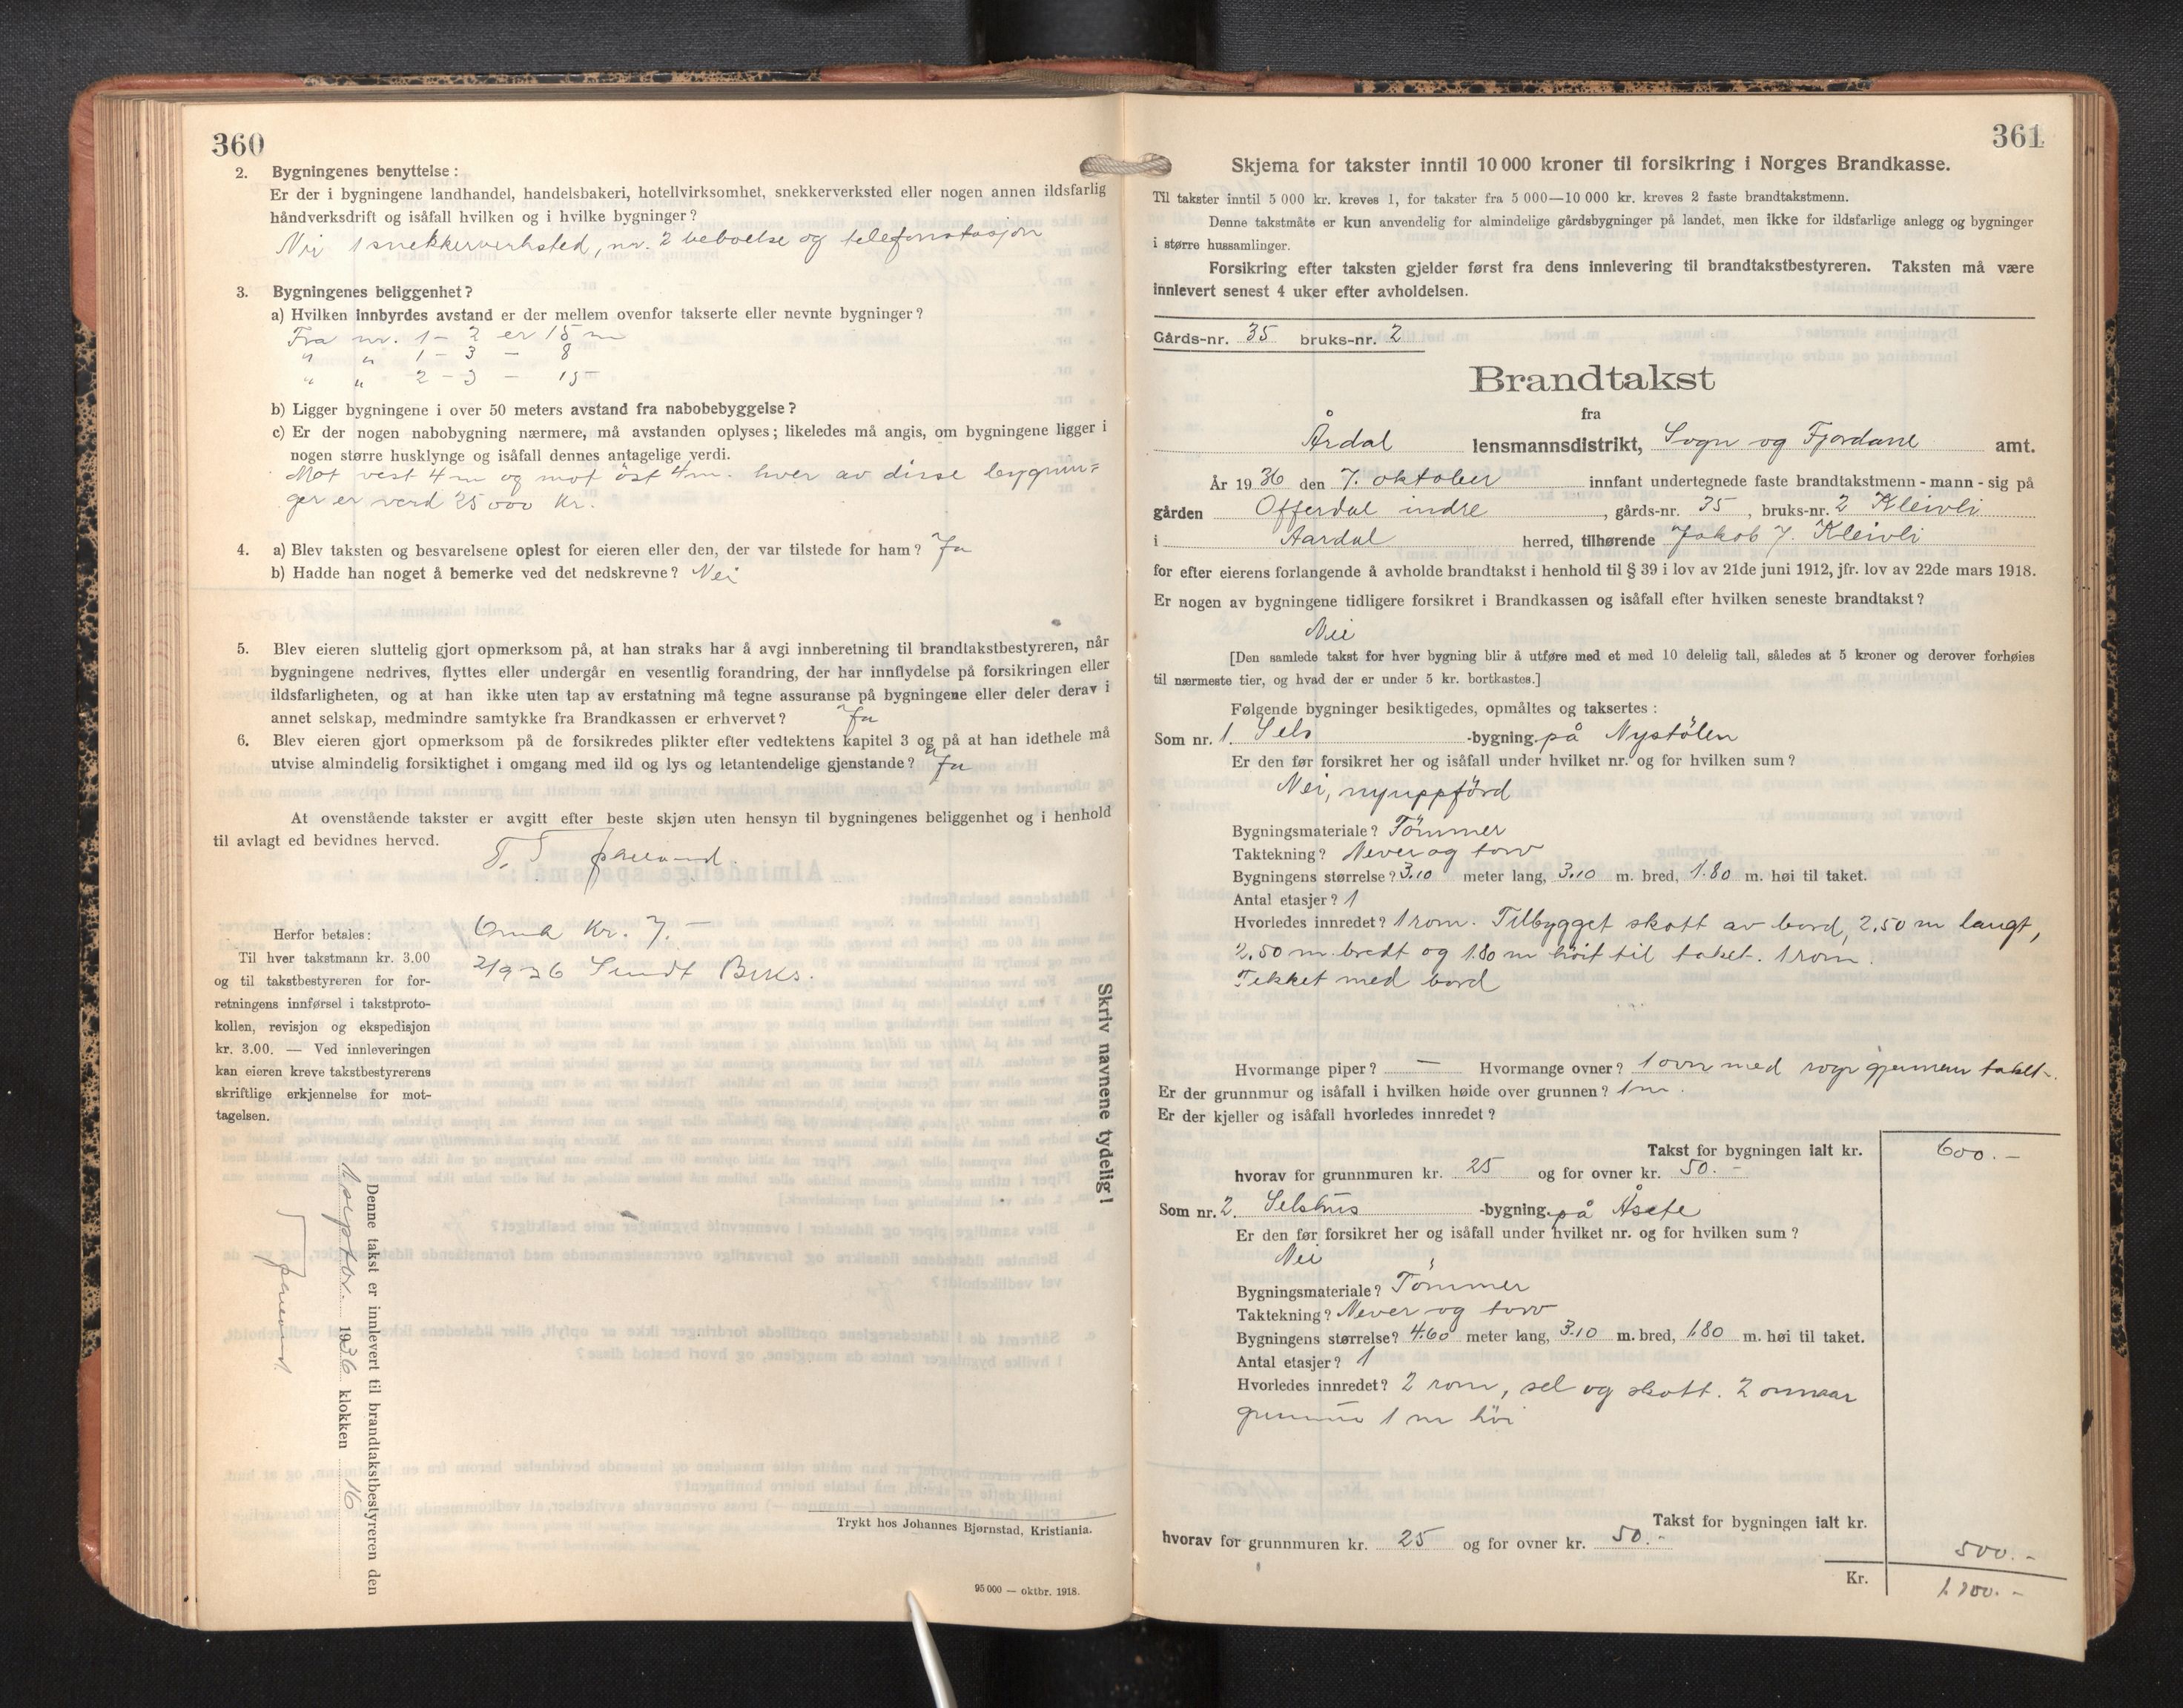 360
2. Bygningenes benyttelse:
Er der i bygningene landhandel, handelsbakeri, hotellvirksomhet, snekkerverksted eller nogen annen ildsfarlig
håndverksdrift og isåfall hvilken og i hvilke bygninger?
Nei 1 snekkerverksted, nr. 2 beboelse og telefonstasjon
3. Bygningenes beliggenhet?
a) Hvilken innbyrdes avstand er der mellem ovenfor takserte eller nevnte bygninger?
Fra nr. 1 - 2 er 15 m
" " 1 - 3 - 8
" " 2 - 3 - 15
b) Ligger bygningene i over 50 meters avstand fra nabobebyggelse?
c) Er der nogen nabobygning nærmere, må avstanden oplyses; likeledes må angis, om bygningene ligger i
nogen større husklynge og isåfall dennes antagelige verdi.
Mot vest 4 m og mot öst 4 m. hver av disse bygnin=
ger er verd 25000 Kr.
4. a) Blev taksten og besvarelsene oplest for eieren eller den, der var tilstede for ham? Ja
b) Hadde han noget å bemerke ved det nedskrevne? Nei
5. Blev eieren sluttelig gjort opmerksom på, at han straks har å avgi innberetning til brandtakstbestyreren, når
bygningene nedrives, flyttes eller undergår en vesentlig forandring, der har innflydelse på forsikringen eller
ildsfarligheten, og at han ikke uten tap av erstatning må tegne assuranse på bygningene eller deler derav i
annet selskap, medmindre samtykke fra Brandkassen er erhvervet? Ja
6. Blev eieren gjort opmerksom på de forsikredes plikter efter vedtektens kapitel 3 og på at han idethele må
utvise almindelig forsiktighet i omgang med ild og lys og letantendelige gjenstande? Ja
At ovenstående takster er avgitt efter beste skjøn uten hensyn til bygningenes beliggenhet og i henhold
til avlagt ed bevidnes herved.
Herfor betales:
Til hver takstmann kr. 3.00
og til takstbestyreren for for-
retningens innførsel i takstproto-
kollen, revisjon og ekspedisjon
kr. 3.00. — Ved innleveringen
kan eieren kreve takstbestyrerens
skriftlige erkjennelse for mot-
tagelsen.
Kr. 7.-
2/9-36
Skriv navnene tydelig!
Denne takst er innlevert til brandtakstbestyreren den
septbr. 1936 klokken 16
Trykt hos Johannes Bjørnstad, Kristiania.
95 000 — oktbr. 1918.
361
Skjema for takster inntil 10 000 kroner til forsikring i Norges Brandkasse.
Til takster inntil 5 000 kr. kreves 1, for takster fra 5 000—10 000 kr. kreves 2 faste brandtakstmenn.
Denne takstmåte er kun anvendelig for almindelige gårdsbygninger på landet, men ikke for ildsfarlige anlegg og bygninger
i større hussamlinger.
Forsikring efter taksten gjelder først fra dens innlevering til brandtakstbestyreren. Taksten må være
innlevert senest 4 uker efter avholdelsen.
Gårds-nr. 35 bruks-nr. 2
Brandtakst
fra
Årdal lensmannsdistrikt, Sogn og Fjordane amt.
År 1936 den 7. oktober innfant undertegnede faste brandtakstmenn - mann - sig på
gården Offerdal indre, gårds-nr. 35, bruks-nr. 2 Kleivli
i Aardal herred, tilhørende Jakob J. Kleivli
for efter eierens forlangende å avholde brandtakst i henhold til § 39 i lov av 21de juni 1912, jfr. lov av 22de mars 1918.
Er nogen av bygningene tidligere forsikret i Brandkassen og isåfall efter hvilken seneste brandtakst?
Nei
[Den samlede takst for hver bygning blir å utføre med et med 10 delelig tall, således at 5 kroner og derover forhøies
til nærmeste tier, og hvad der er under 5 kr. bortkastes.]
Følgende bygninger besiktigedes, opmåltes og taksertes:
Som nr. 1. Sels -bygning på Nystölen
Er den før forsikret her og isåfall under hvilket nr. og for hvilken sum?
Nei, nyuppförd
Bygningsmateriale? Tömmer
Taktekning? Never og torv
Bygningens størrelse? 3.10 meter lang, 3.10 m. bred, 1.80 m. høi til taket.
Antal etasjer? 1
Hvorledes innredet? 1 rom. Tilbygget skott av bord, 2.50 m langt,
2.50 m. bredt og 1.80 m höit til taket. 1 rom.
Tekket med bord
Hvormange piper? — Hvormange ovner? 1 ovn med rør gjennem taket.
Er der grunnmur og isåfall i hvilken høide over grunnen? 1 m.
Er der kjeller og isåfall hvorledes innredet?
Takst for bygningen ialt kr. 600.-
hvorav for grunnmuren kr. 25 og for ovner kr. 50.-
Som nr. 2. Selshus -bygning på Åsete
Er den før forsikret her og isåfall under hvilket nr. og for hvilken sum?
Nei
Bygningsmateriale? Tömmer
Taktekning? Never og torv
Bygningens størrelse? 4.60 meter lang, 3.10 m. bred, 1.80 m. høi til taket.
Antal etasjer? 1
Hvorledes innredet? 2 rom, sel og skott. 2 omnaar
1 m höi
Takst for bygningen ialt kr.
hvorav for grunnmuren kr. 25 og for ovner kr. 50.-
500.-
Kr. 1.100.-